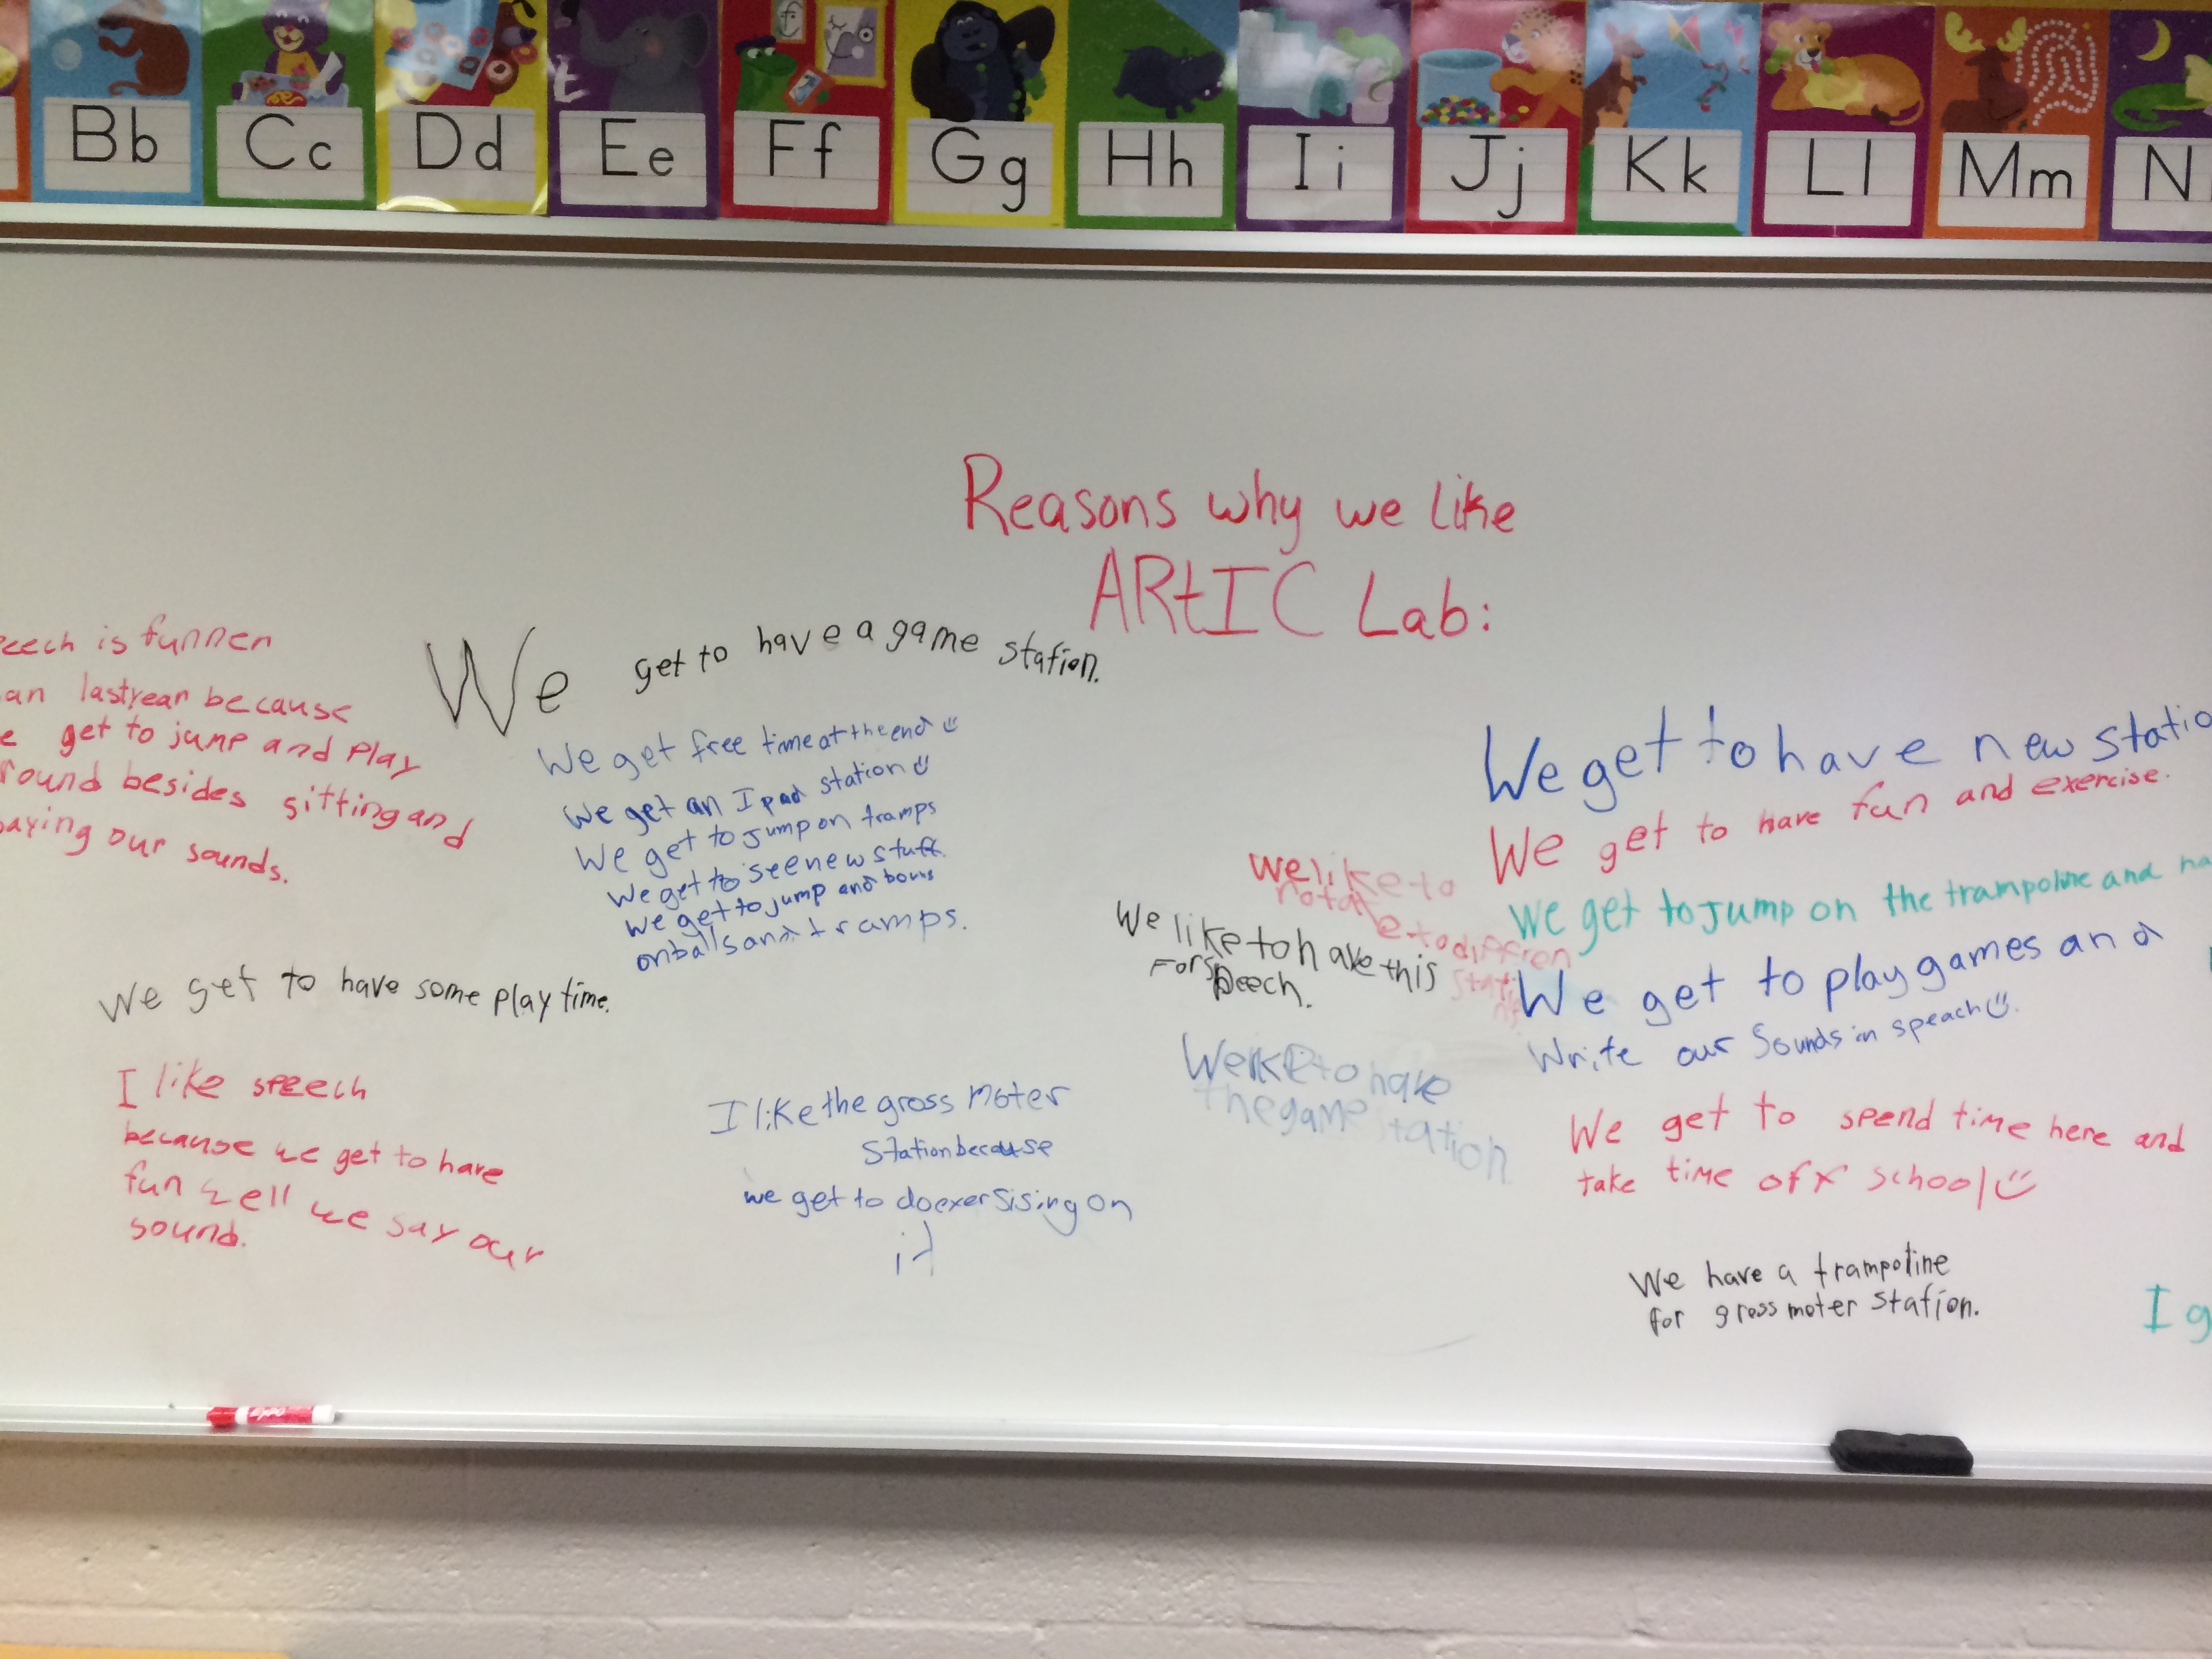 Bb Cc Dd Ee Ff Gg Hh Ii Jj Kk Ll Mm N
Reasons why we like
ARtIC Lab:
eech is funnen
an lastyear because
e get to jump and Play
round besides sitting and
aying our sounds.
We get to have a game station.
We get free time at the end
We get an Ipad station
We get to jump on tramps
We get to see new stuff.
We get to jump and
on balls and tramps.
We get to have some play time.
I like speech
because we get to have
fun well we say our
sound.
I like the gross moter
Station because
we get to do exersising on
it
We like to
e to diffren
We like to have this
For speech.
We like to have
the game station
We get to have new statio
We get to have fun and exercise.
We get to Jump on the trampoline and ha
We get to play games and
Write our Sounds in speach
We get to spend time here and
take time off school
We have a trampoline
for gross moter station.
I g
expo